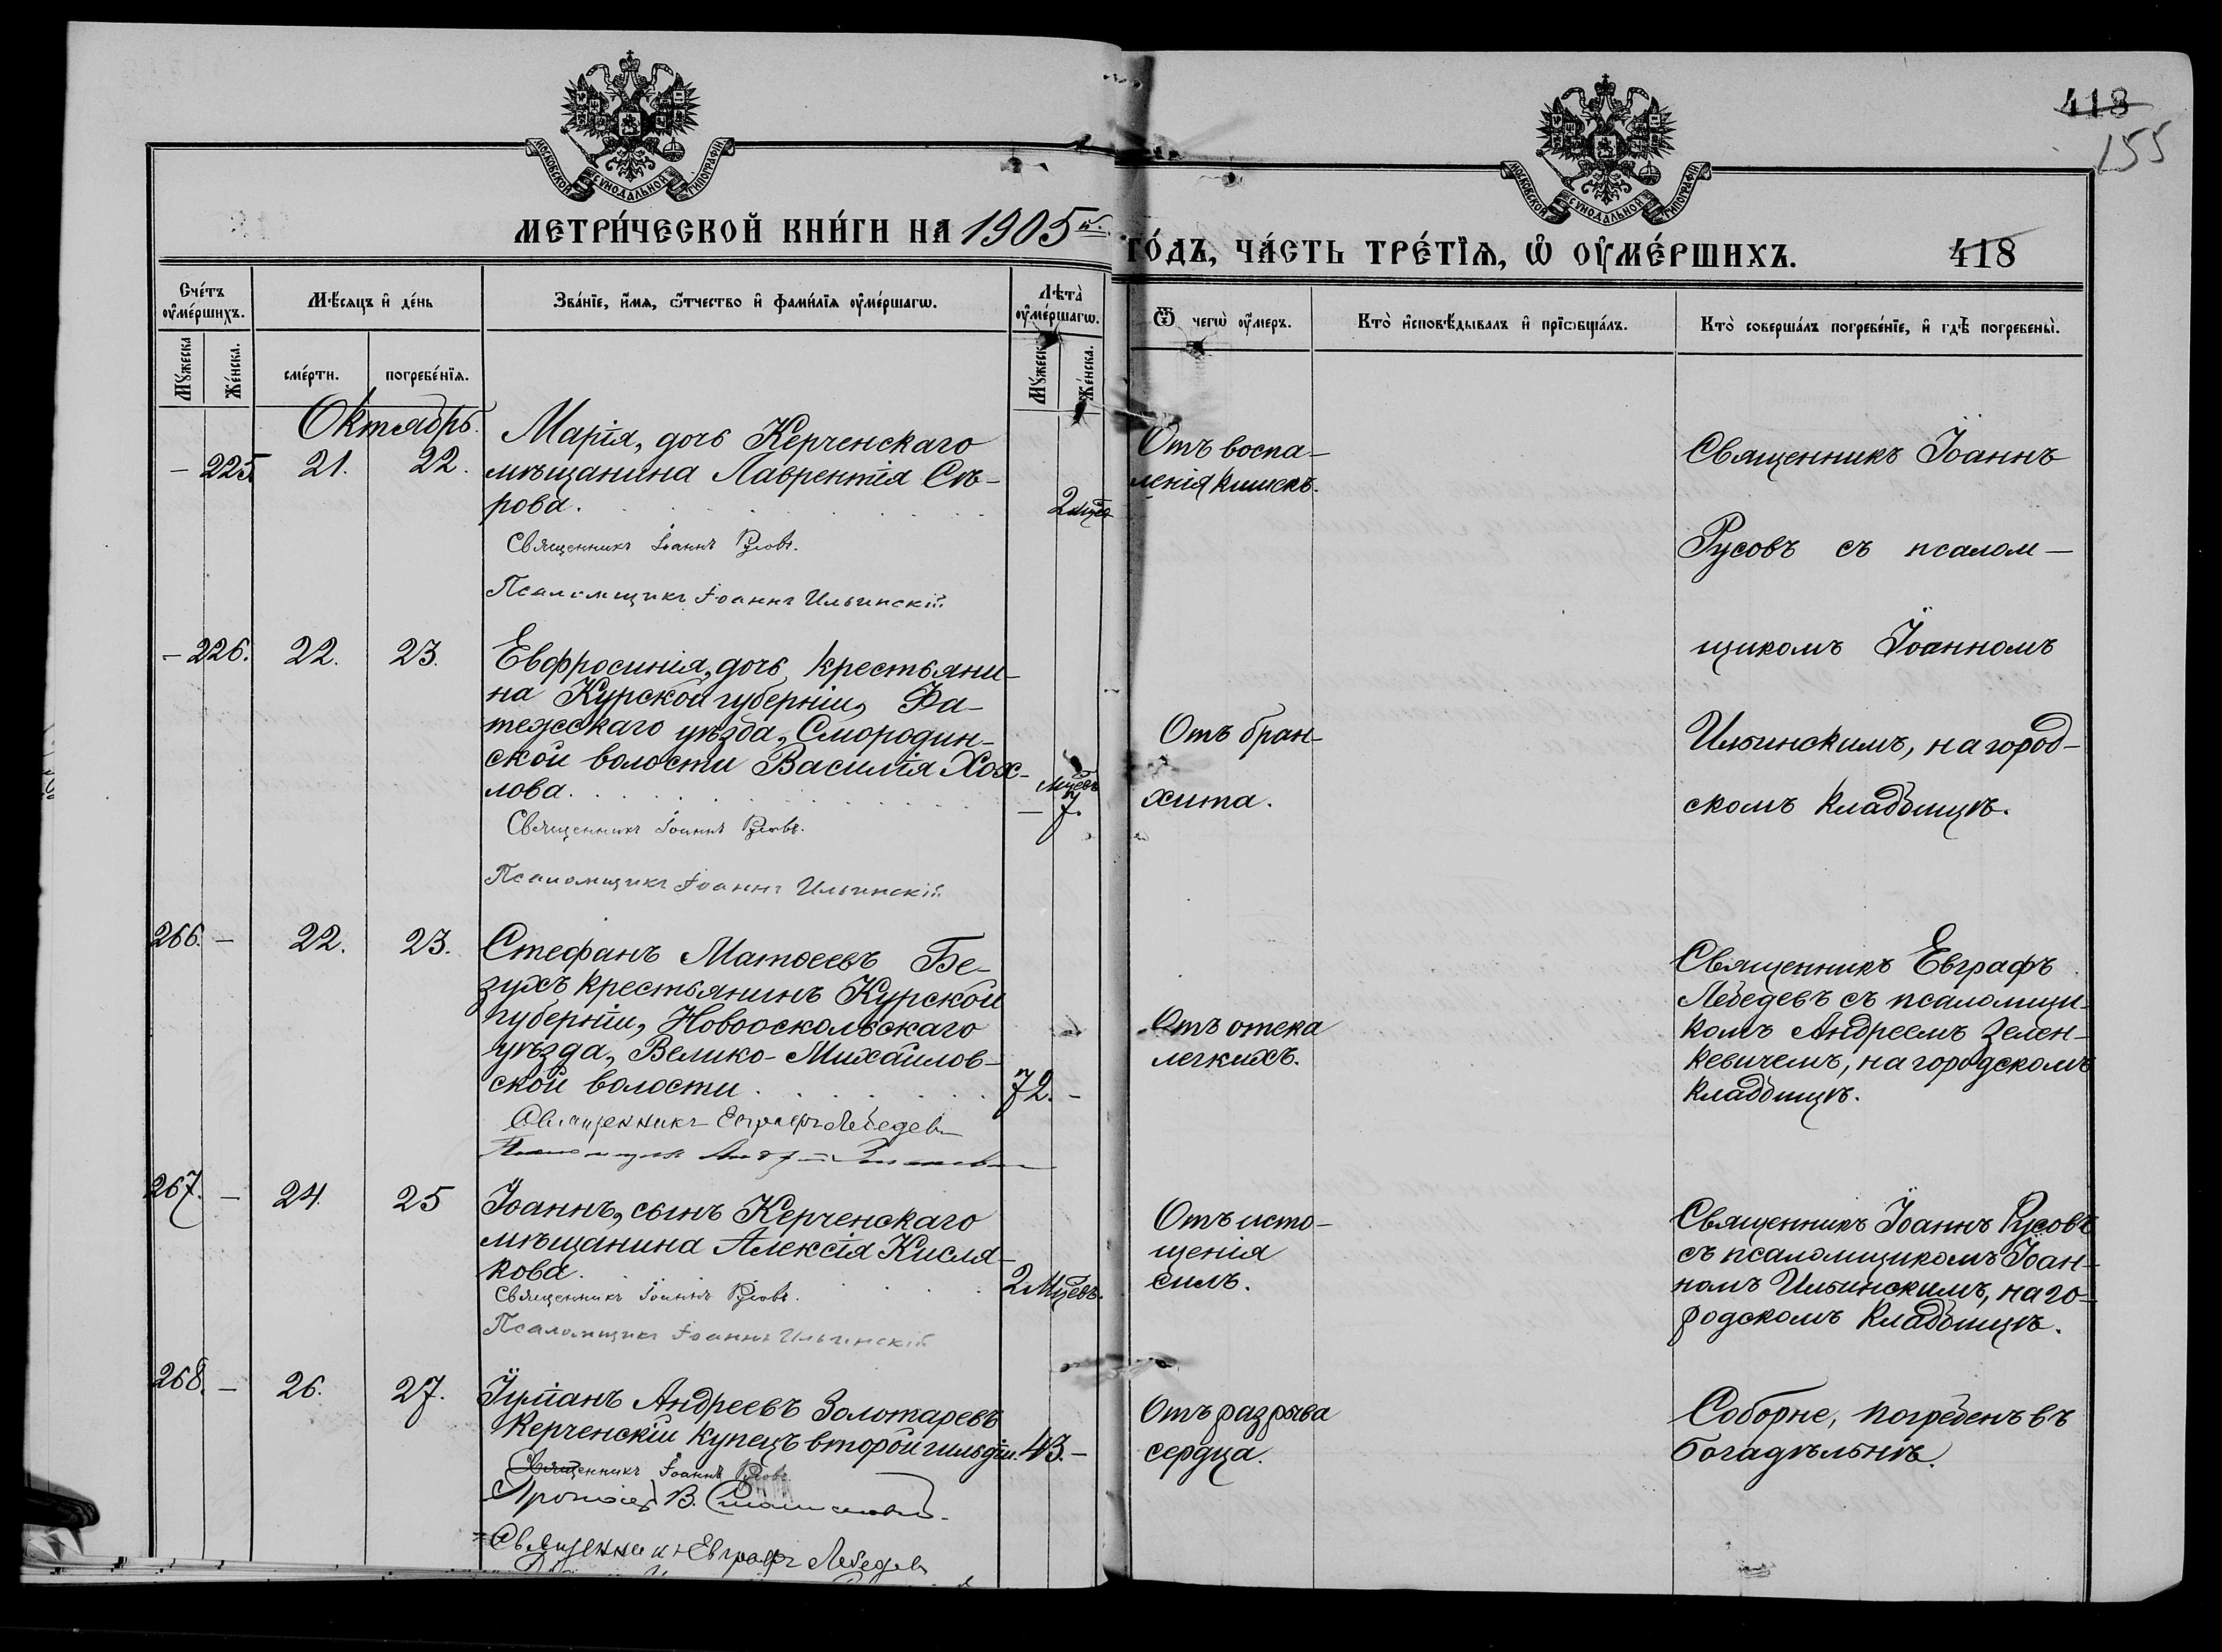 418
155
МОСКОВСКОЙ СѴНОДАЛЬНОЙ ТИПОГРАФІИ
МОСКОВСКОЙ СѴНОДАЛЬНОЙ ТИПОГРАФІИ
МЕТРИ́ЧЕСКОЙ КНИ́ГИ НА 1905й
ГО́ДЪ, ЧА́СТЬ ТРЕ́ТЇѦ, Ѡ҆ ОУ҆МЕ́РШИХЪ.
418
Сче́тъ оу҆ме́ршихъ.
Мꙋ́жеска
Же́нска.
Мѣ́сяцъ и҆ де́нь
сме́рти.
погребе́нїя.
Зва́нїе, и҆́мя, ѻ҆́тчество и҆ фами́лїя оу҆ме́ршагѡ.
Лѣта̀ оу҆ме́ршагѡ.
Мꙋ́жеска
Же́нска.
Ѿ чегѡ̀ оу҆́меръ.
Кто̀ и҆сповѣ́дывалъ и҆ прїѡбща́лъ.
Кто̀ соверша́лъ погребе́нїе, и҆ гдѣ̀ погребены̀.
Октябрь.
– 225. 21. 22.
Марія, дочь Керченскаго
мѣщанина Лаврентія Сѣ-
рова.
2 мѣся
Священникъ Іоаннъ Русовъ.
Псаломщикъ Іоаннъ Ильинскій
Отъ воспа-
ленія кишекъ.
Священникъ Іоаннъ
Русовъ съ псалом-
щикомъ Іоанномъ
Ильинскимъ, на город-
скомъ кладбищѣ.
– 226. 22. 23.
Евфросинія, дочь крестьяни-
на Курской губерніи, Фа-
тежскаго уѣзда, Смородин-
ской волости Василія Хох-
лова.
– 7. мцевъ
Священникъ Іоаннъ Русовъ.
Псаломщикъ Іоаннъ Ильинскій
Отъ брон-
хита.
266. – 22. 23.
Стефанъ Матѳеевъ Бе-
зухъ крестьянинъ Курской
губерніи, Новооскольскаго
уѣзда, Велико-Михайлов-
ской волости
72. –
Священникъ Евграфъ Лебедевъ
Псаломщикъ Андрей
Отъ отека
легкихъ.
Священникъ Евграфъ
Лебедевъ съ псаломщи-
комъ Андреемъ Зелен-
кевичемъ, на городскомъ
кладбищѣ.
267. – 24. 25
Іоаннъ, сынъ Керченскаго
мѣщанина Алексія Кисля-
кова.
2 мцевъ.
Священникъ Іоаннъ Русовъ.
Псаломщикъ Іоаннъ Ильинскій
Отъ исто-
щенія
силъ.
Священникъ Іоаннъ Русовъ
съ псаломщикомъ Іоан-
номъ Ильинскимъ, на го-
родскомъ кладбищѣ.
268. – 26. 27.
Іуліанъ Андреевъ Золотаревъ
Керченскій купецъ второй гильдіи.
43. –
Священникъ Іоаннъ Русовъ.
Протоіер В.
Священникъ Евграфъ Лебедевъ
Отъ разрыва
сердца.
Соборне, погребенъ въ
богадѣльнѣ.